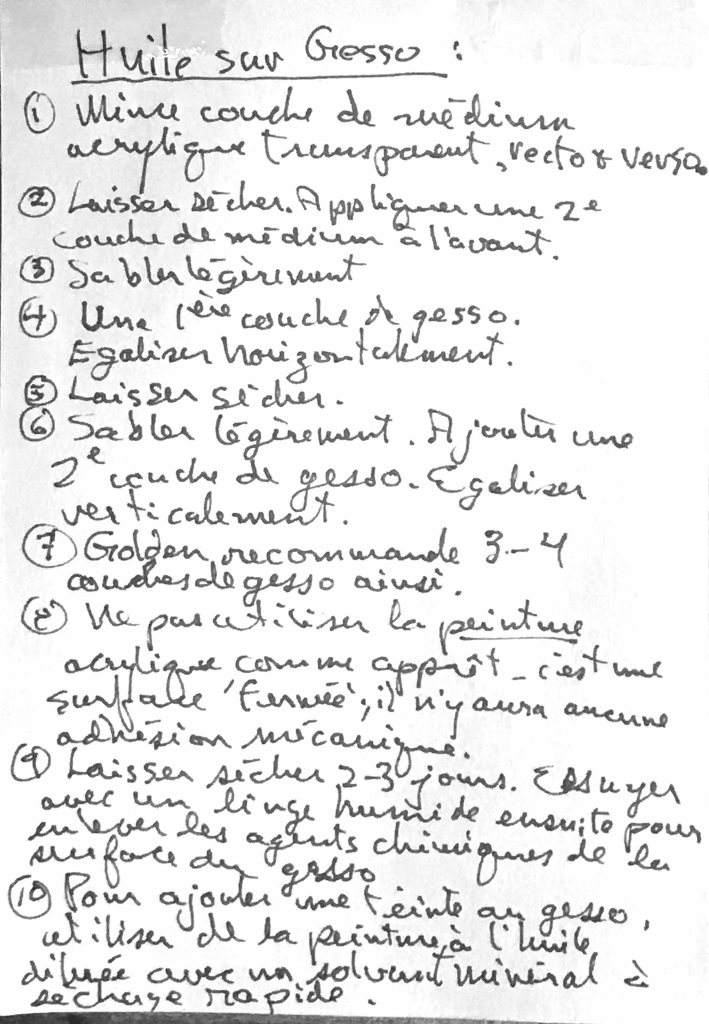 Huile sur Gesso :
① Mince couche de médium
acrylique transparent, recto & verso.
② Laisser sécher. Appliquer une 2e
couche de médium à l'avant.
③ Sabler légèrement
④ Une 1ère couche de gesso.
Egaliser horizontalement.
⑤ Laisser sécher.
⑥ Sabler légèrement. Ajouter une
2e couche de gesso. Egaliser
verticalement.
⑦ Golden recommande 3-4
couches de gesso ainsi.
⑧ Ne pas utiliser la peinture
acrylique comme apprêt - c'est une
surface 'fermée'; il n'y aura aucune
adhésion mécanique.
⑨ Laisser sécher 2-3 jours. Essuyer
avec un linge humide ensuite pour
enlever les agents chimiques de la
surface du gesso
⑩ Pour ajouter une teinte au gesso,
utiliser de la peinture à l'huile
diluée avec un solvant minéral à
séchage rapide.